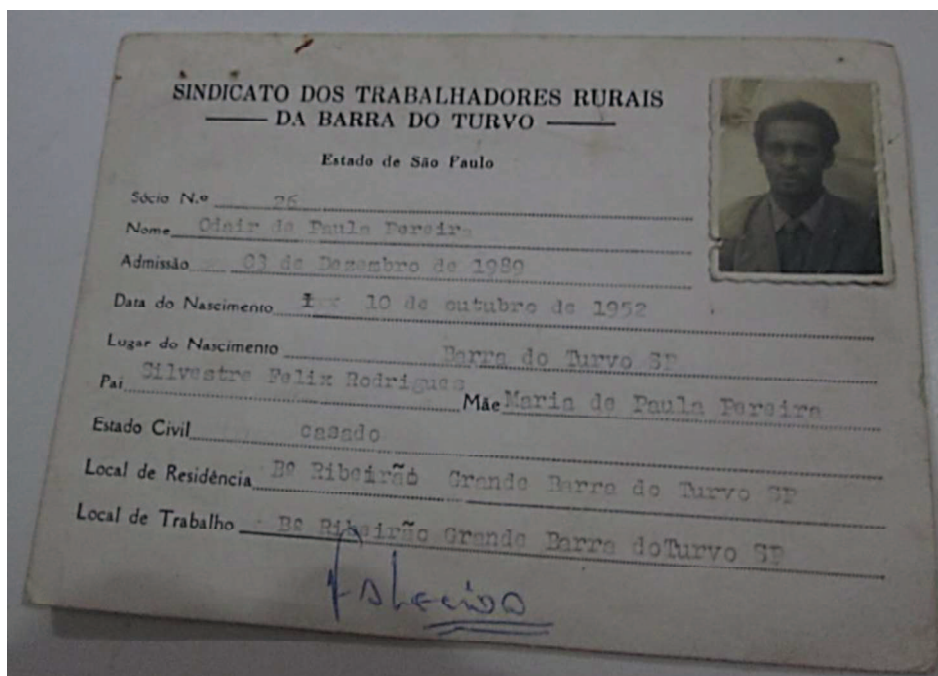 SINDICATO DOS TRABALHADORES RURAIS
DA BARRA DO TURVO
Estado de São Paulo
Sócio N.º 26
Nome Odair de Paula Pereira
Admissão 03 de Dezembro de 1989
Data do Nascimento 10 de outubro de 1952
Lugar do Nascimento Barra do Turvo SP
Pai Silvestre Felix Rodrigues Mãe Maria de Paula Pereira
Estado Civil casado
Local de Residência Bº Ribeirão Grande Barra do Turvo SP
Local de Trabalho Bº Ribeirão Grande Barra doTurvo SP
Falecido